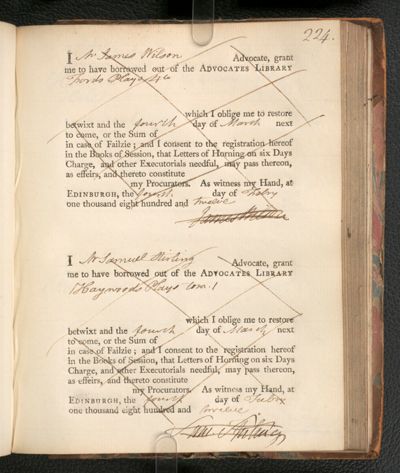 224.
I Mr James Wilson Advocate, grant
me to have borrowed out of the ADVOCATES LIBRARY
Fords Plays 4to
which I oblige me to restore
betwixt and the fourth day of March next
to come, or the Sum of
in case of Failzie; and I consent to the registration hereof
in the Books of Session, that Letters of Horning on six Days
Charge, and other Executorials needful, may pass thereon,
as effeirs, and thereto constitute
my Procurators. As witness my Hand, at
EDINBURGH, the fourth day of Febry
one thousand eight hundred and twelve
James Wilson
I Mr Samuel Stirling Advocate, grant
me to have borrowed out of the ADVOCATES LIBRARY
Haywoods Plays tom. 1
which I oblige me to restore
betwixt and the fourth day of March next
to come, or the Sum of
in case of Failzie; and I consent to the registration hereof
in the Books of Session, that Letters of Horning on six Days
Charge, and other Executorials needful, may pass thereon,
as effeirs, and thereto constitute
my Procurators. As witness my Hand, at
EDINBURGH, the fourth day of Febry
one thousand eight hundred and twelve
Sam Stirling